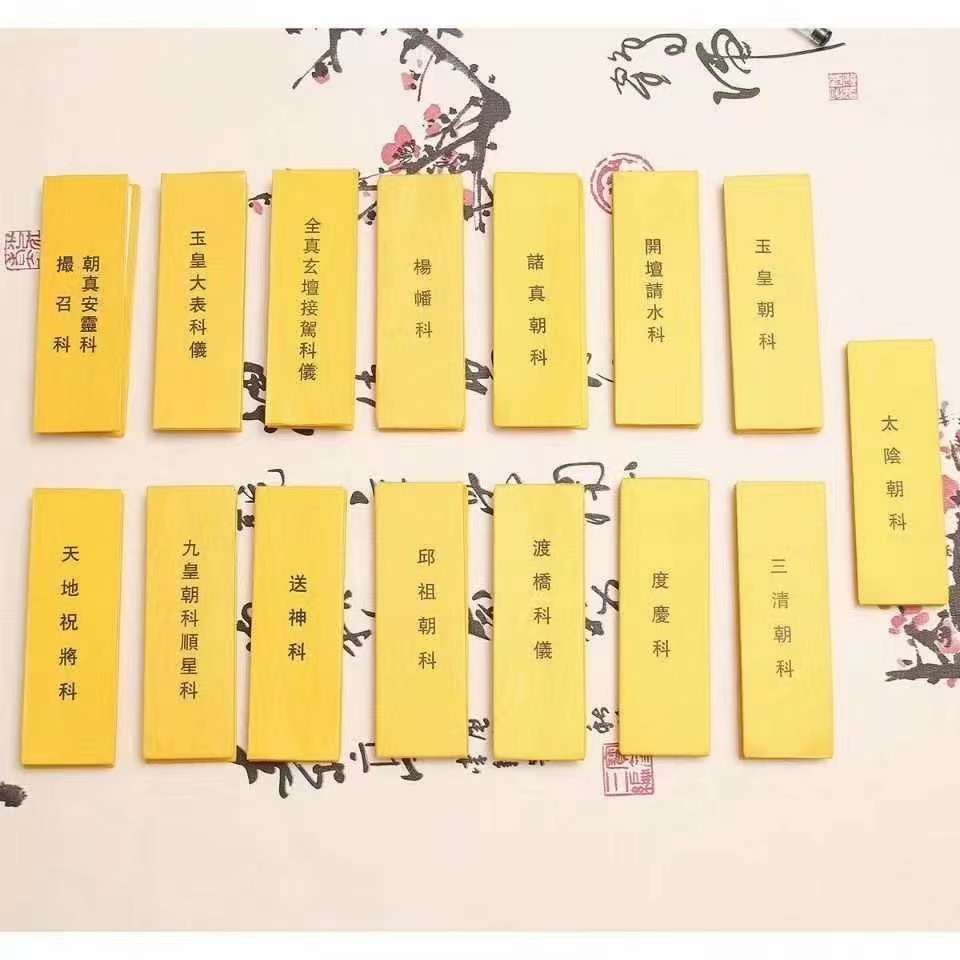 朝真安靈科
撮召科
玉皇大表科儀
全真玄壇接駕科儀
楊幡科
諸真朝科
開壇請水科
玉皇朝科
太陰朝科
天地祝將科
九皇朝科順星科
送神科
邱祖朝科
渡橋科儀
度慶科
三清朝科